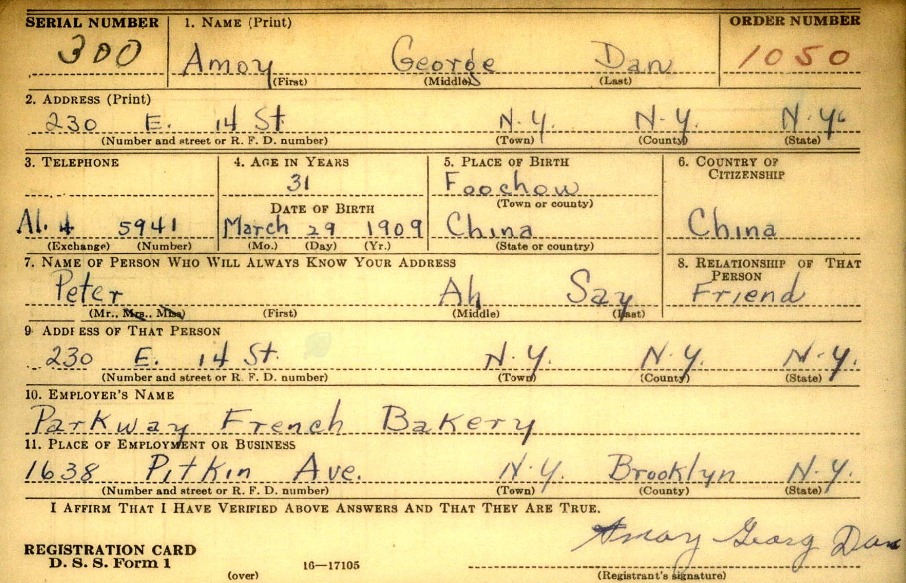 SERIAL NUMBER 1. NAME (Print) ORDER NUMBER
300 Amoy George Dan 1050
(First) (Middle) (Last)
2. ADDRESS (Print)
230 E. 14 St N.Y. N.Y. N.Y.
(Number and street or R. F. D. number) (Town) (County) (State)
3. TELEPHONE 4. AGE IN YEARS 5. PLACE OF BIRTH 6. COUNTRY OF
CITIZENSHIP
31 Foochow
(Town or county)
DATE OF BIRTH
Al. 4 5941 March 29 1909 China China
(Exchange) (Number) (Mo.) (Day) (Yr.) (State or country)
7. NAME OF PERSON WHO WILL ALWAYS KNOW YOUR ADDRESS 8. RELATIONSHIP OF THAT
PERSON
Peter Ah Say Friend
(Mr., Mrs., Miss) (First) (Middle) (Last)
9 ADDRESS OF THAT PERSON
230 E. 14 St. N.Y. N.Y. N.Y.
(Number and street or R. F. D. number) (Town) (County) (State)
10. EMPLOYER'S NAME
Parkway French Bakery
11. PLACE OF EMPLOYMENT OR BUSINESS
1638 Pitkin Ave. N.Y. Brooklyn N.Y.
(Number and street or R. F. D. number) (Town) (County) (State)
I AFFIRM THAT I HAVE VERIFIED ABOVE ANSWERS AND THAT THEY ARE TRUE.
Amoy Georg Dan
REGISTRATION CARD
D. S. S. Form 1 16—17105
(over) (Registrant's signature)